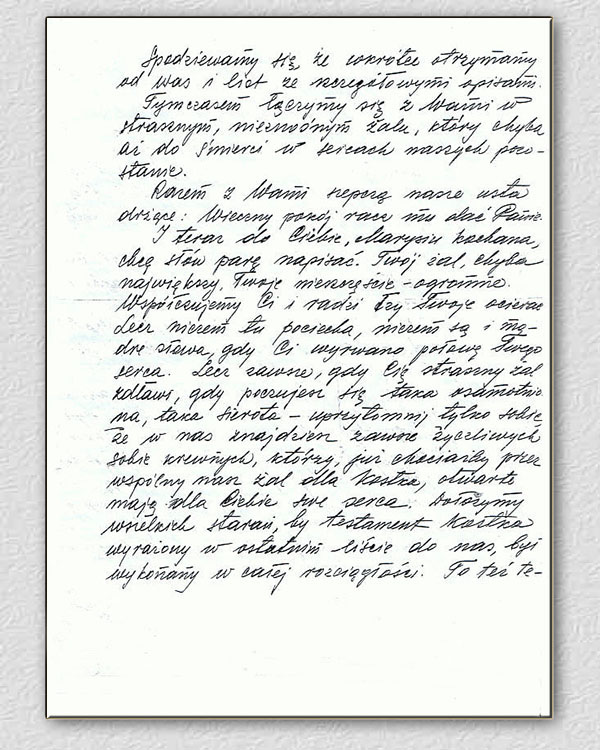 Spodziewamy się, że wkrótce otrzymamy
od was i list ze szczegółowymi opisami.
Tymczasem łączymy się z Wami w
strasznym, nieznośnym żalu, który chyba
aż do śmierci w sercach naszych pozo-
stanie.
Razem z Wami szepczą nasze usta
drżące: Wieczny pokój racz mu dać Panie
I teraz do Ciebie, Marysiu kochana,
chcę słów parę napisać. Twój żal, chyba
największy, Twoje nieszczęście - ogromne.
Współczujemy Ci i radzi łzy Twoje ocierać
Lecz niczem tu pociecha, niczem są i mą-
dre słowa, gdy Ci wyrwano połowę Twego
serca. Lecz zawsze, gdy Cię straszny żal
zdławi, gdy poczujesz się taka osamotnio
na, taka sierota - uprzytomnij tylko sobie,
że w nas znajdziesz zawsze życzliwych
sobie krewnych, którzy, już chociażby przez
wspólny nasz żal dla Kostka, otwarte
mają dla Ciebie swe serca. Dołożymy
wszelkich starań, by testament Kostka
wyrażony w ostatnim liście do nas, był
wykonany w całej rozciągłości. To też te-